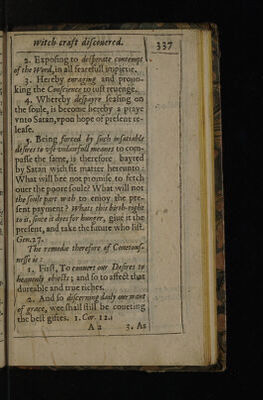 Witch craft discovered.
337
2. Exposing to desperate contempt
of the Word, in all fearefull impietie.
3. Hereby enraging and provo-
king the Conscience to iust revenge.
4. Whereby despayre seasing on
the soule, is become hereby a praye
vnto Satan, vpon hope of present re-
lease.
5. Being forced by such insatiable
desires to vse vnlawfull meanes to com-
passe the same, is therefore bayted
by Satan with fit matter hereunto:
What will hee not promise to fetch
ouer the poore soule? What will not
the soule part with to enjoy the pre-
sent payment? Whats this birth-right
to it, since it dyes for hunger, giue it the
present, and take the future who list.
Gen. 27.
The remedie therefore of Couetous-
nesse is:
1. First, To conuert our Desires to
heauenly obiects; and so to affect that
dureable and true riches.
2. And so discerning daily our want
of grace, wee shall still be coueting
the best giftes. 1. Cor. 12.
A a
3. As